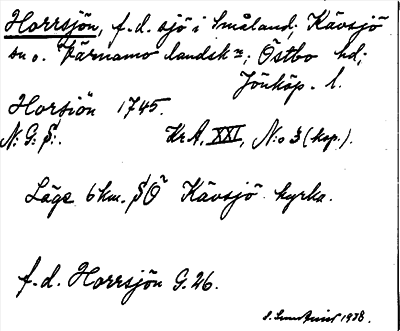 Horrsjön, f.d. sjö i Småland; Kävsjö
sn o. Värnamo landskn; Östbo hd;
Jönköp. l.
Horsiön 1745.
N: G: S:. KrA. XXI, N:o 3 (kop.).
Läge 6 km. SO Kävsjö kyrka.
f.d. Horrsjön G. 26.
1938.